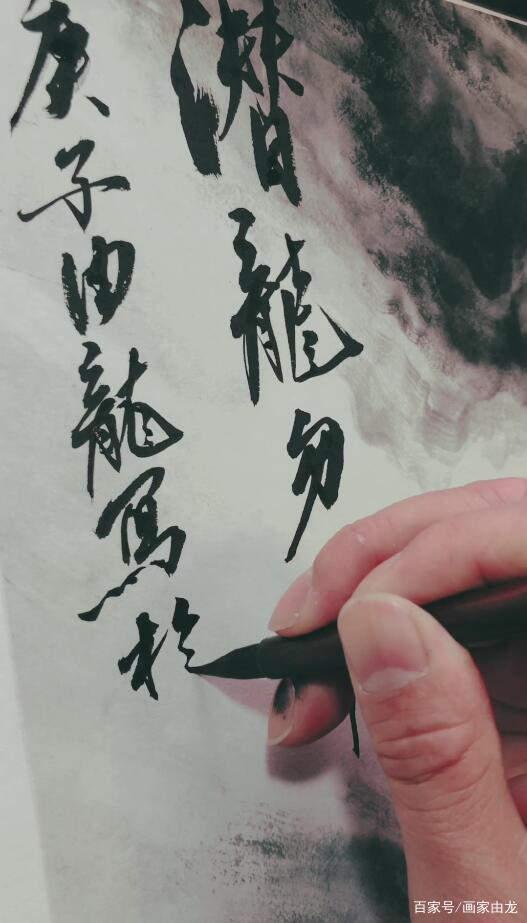 潛龍勿
庚子由龍寫於
百家号/画家由龙